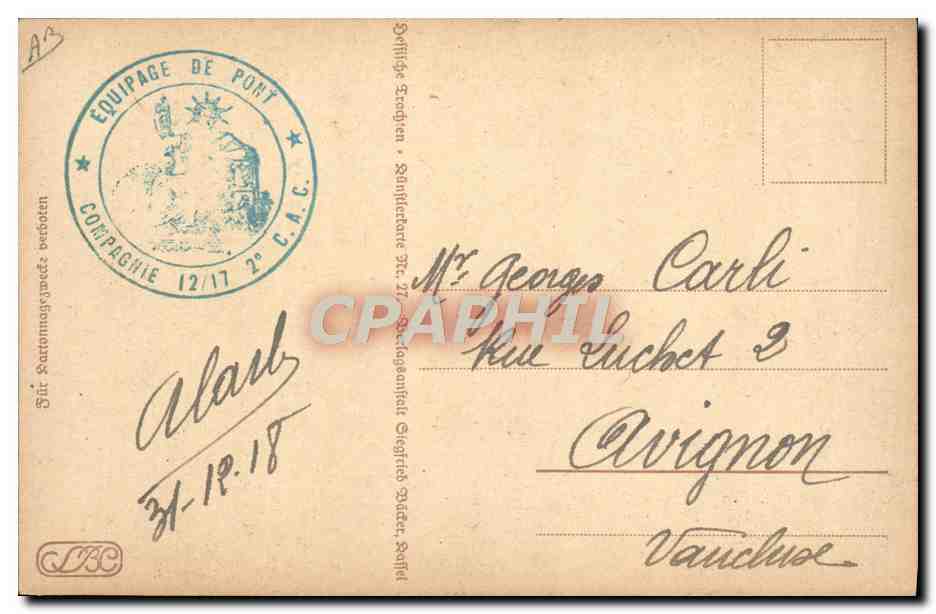 AB
ÉQUIPAGE DE PONT
COMPAGNIE 12/17 2º C.A.C.
Für Kartonnagezwecke verboten
Hessische Trachten • Künstlerkarte Nr. 27. Verlagsanstalt Siegfried Bäcker, Kassel
CPAPHIL
Mr. Georges Carli
Rue Luchet 2
Avignon
Vaucluse
31-12-18